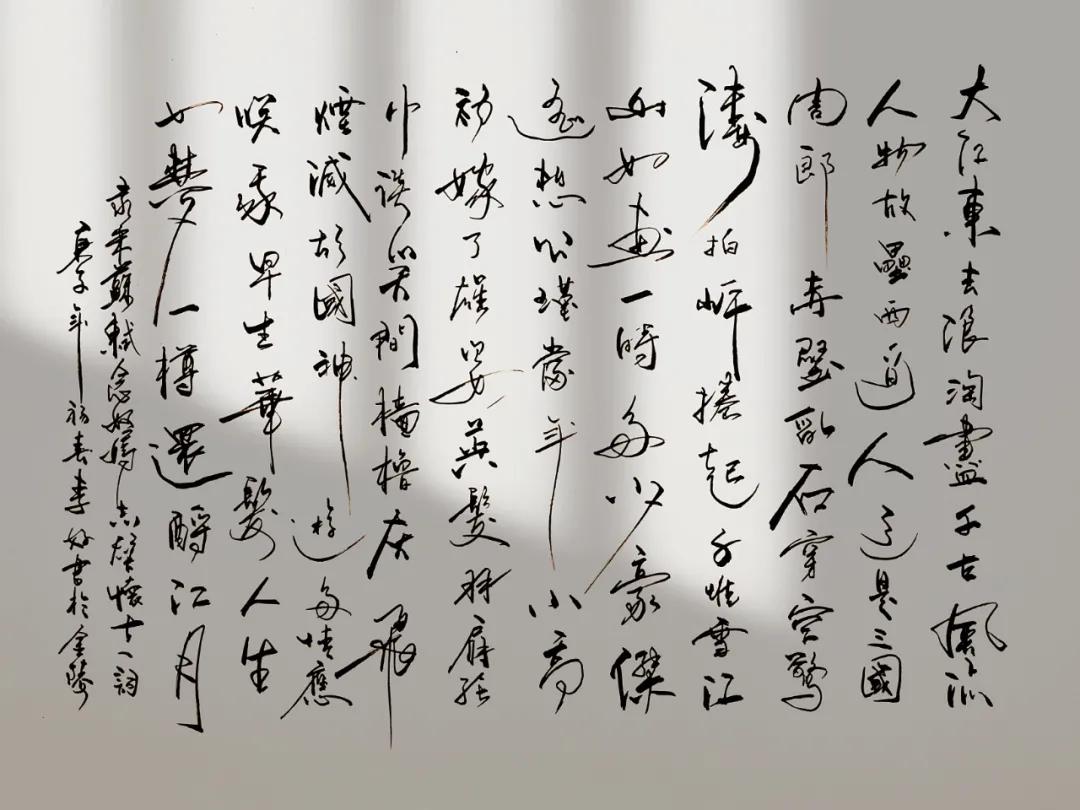 大江東去浪淘盡千古風流
人物故壘西邊人道是三國
周郎赤壁亂石穿空驚
濤拍岸捲起千堆雪江
山如畫一時多少豪傑
遙想公瑾當年小喬
初嫁了雄姿英發羽扇綸
巾談笑間檣櫓灰飛
煙滅故國神遊多情應
笑我早生華髮人生
如夢一樽還酹江月
錄宋蘇軾念奴嬌赤壁懷古一詞
庚子年初春李書於金陵